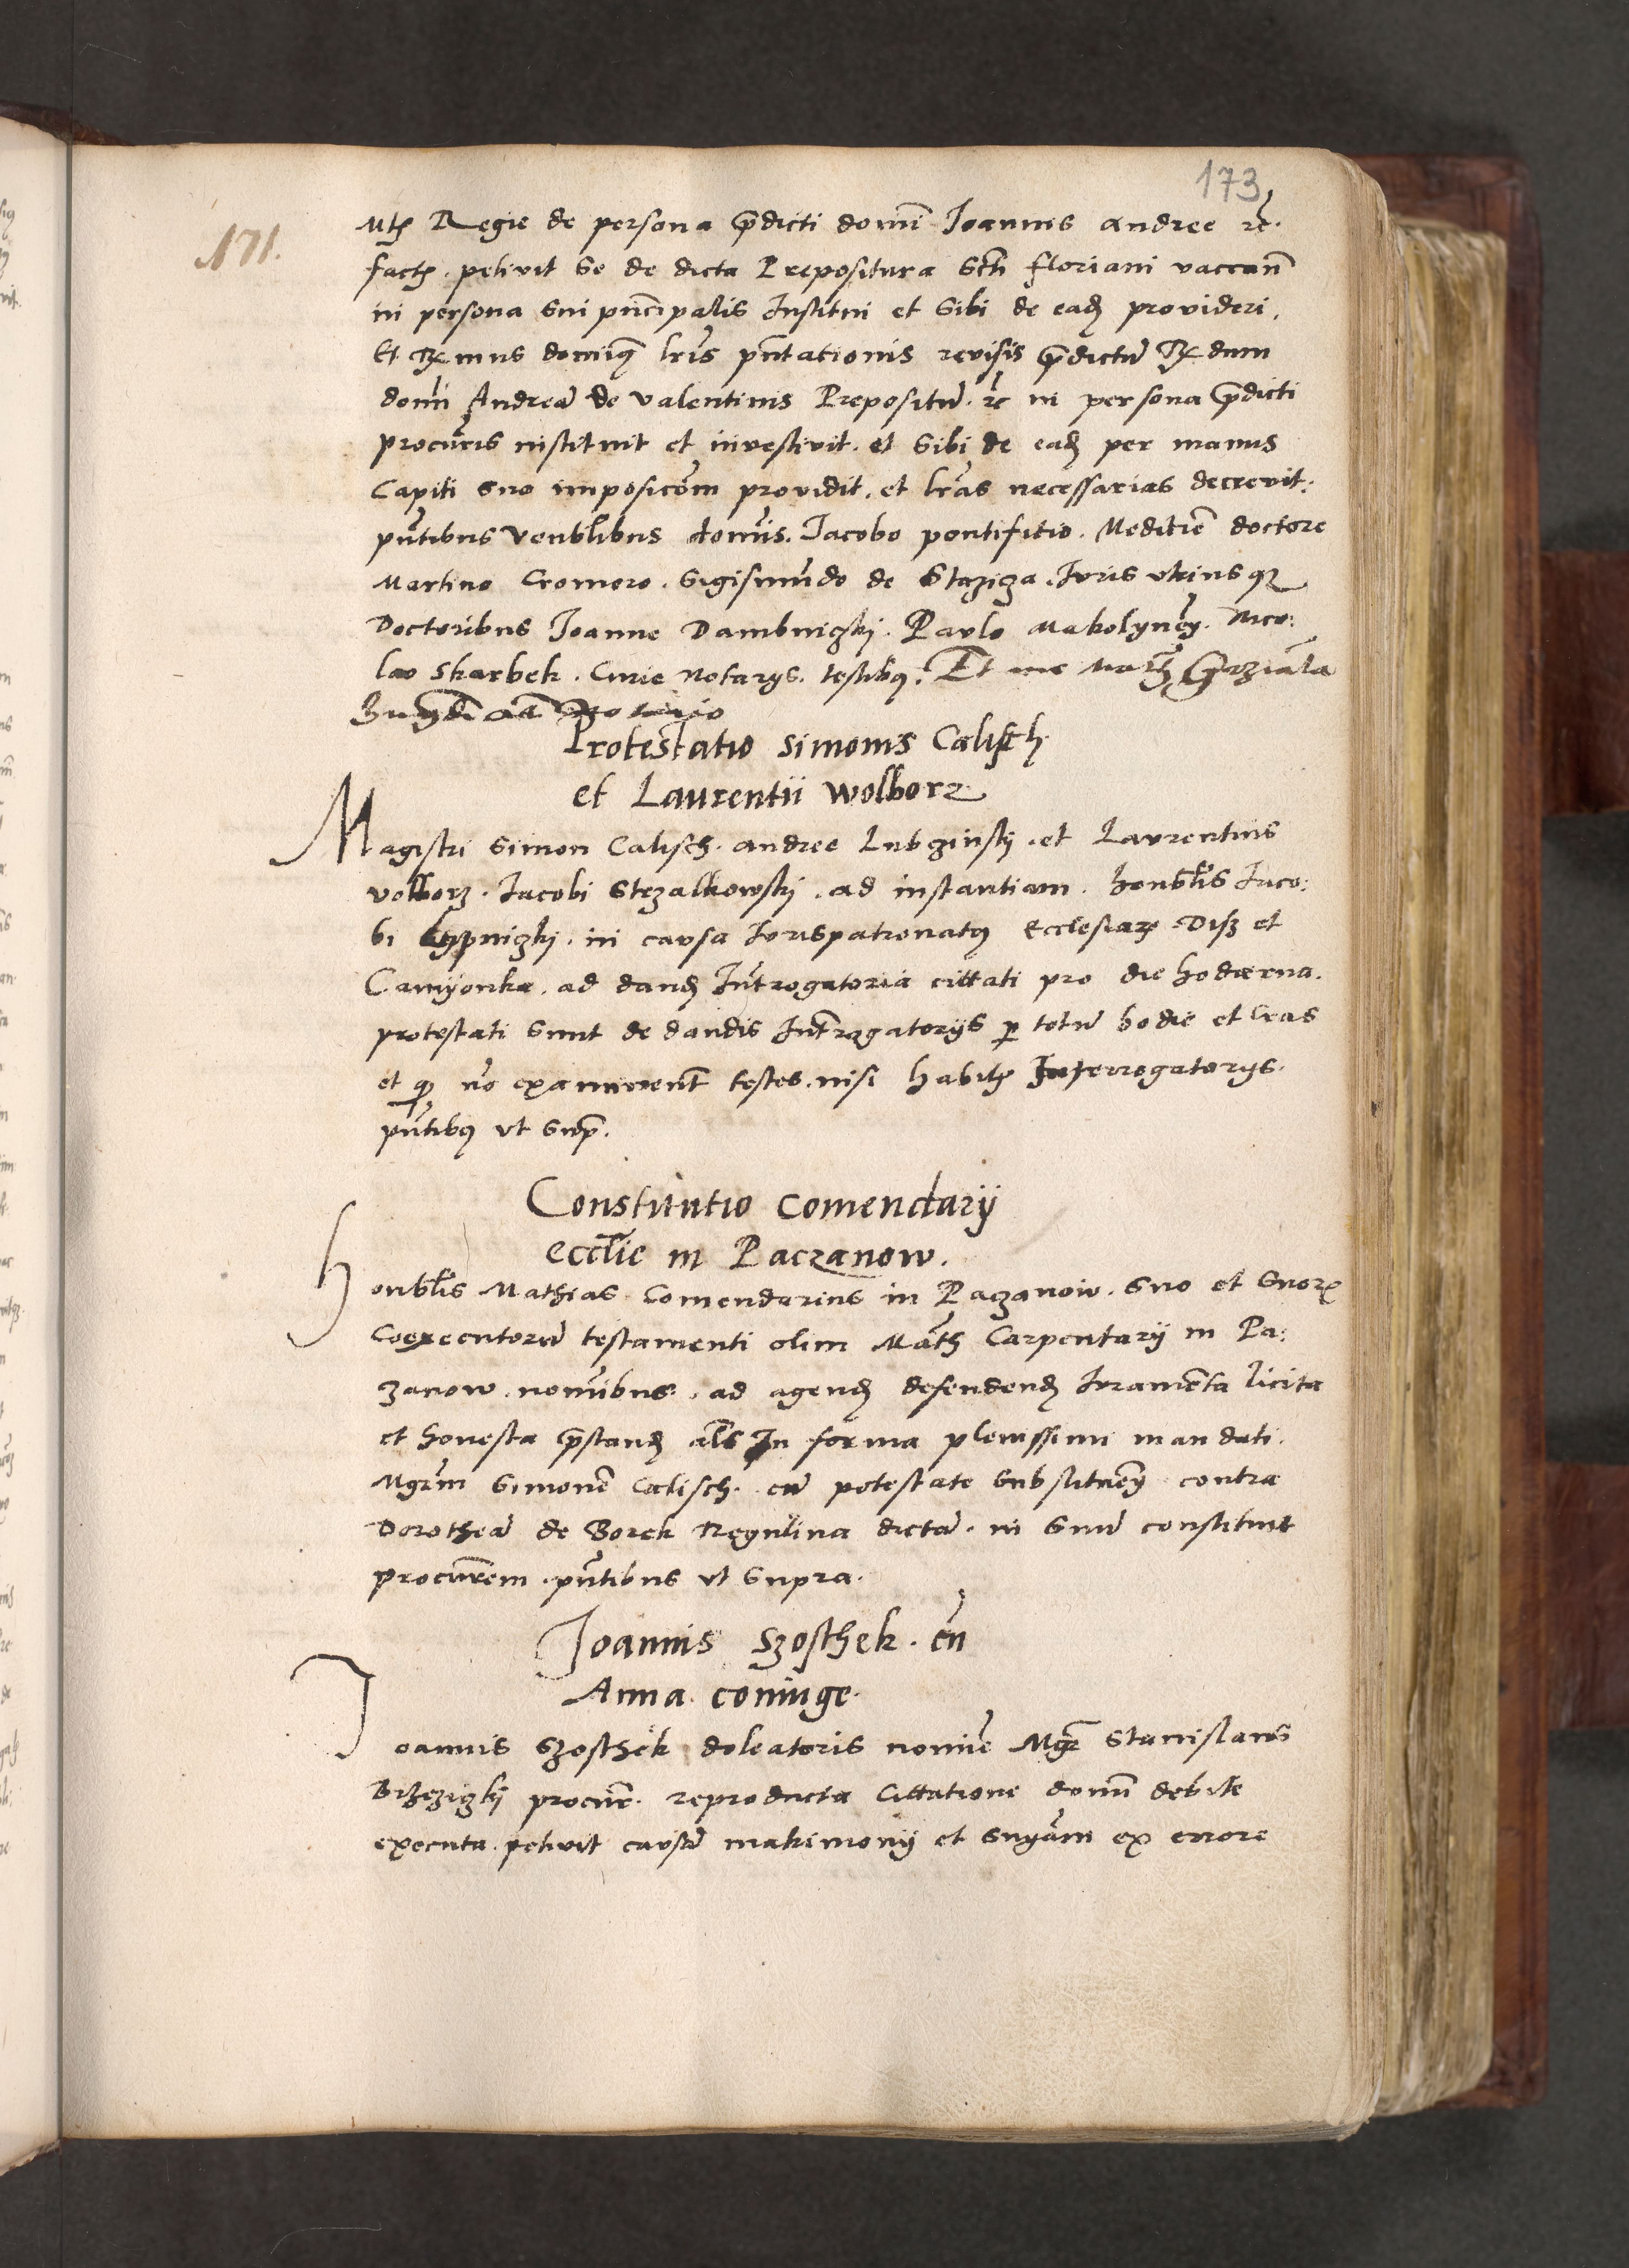 173
171.
Mtis Regie de persona p̄dicti domī Joannis Andree rc̄.
factis. petivit se de dicta Prepositura Scti Floriani vaccan̄
in persona sui pn̄cipalis Institui et sibi de eadē provideri.
Et Rx̄mus domīq lrīs pn̄tationis revisis p̄dictū Rx̄dum
domī Andreā de Valentinis Prepositū. rc̄ in persona p̄dicti
procur̄is instituit et investivit. et sibi de eadē per manus
Capiti suo imposicōm providit. et lrās necessarias decrevit:
pn̄tibus Venblibus domīs. Jacobo pontifitio. Meditiē doctore
Martino Cromero. Sigismūdo de Stęziza. Juris utriusq3
Doctoribus Joanne Dambniczki. Paulo Makolyn̄cy. Nico:
lao Skarbek. Curie Notarys. testibq. Et me
Protestatio Simonis Calisch
et Laurentii Wolborz
Magistri Simon Calisch. Andree Lubczinsky. et Laurentius
Volborz. Jacobi Strzalkowski. ad instantiam. honblis Jaco:
bi Lypniczky. in causa Jurispatronatq Ecclesiarz. Disz et
Camyonka. ad dandū Int̄rogatoria cittati pro die hodierna.
protestati sunt de dandis Int̄rogatoriis p totū hodie et cras
et q nō examinent̄ testes. nisi habitis Interrogatorys.
pn̄tibq ut sup̄.
Constitutio comendarij
eccl̄ie in Paczanow.
Honblis Mathias Comendarius in Paczanow. suo et suorz
Coexecutorū testamenti olim Math̄ Carpentarij in Pa:
czanow. nomībus. ad agendū defendendū Juramēta licita
et honesta p̄standū al̄s In forma plenissimi mandati.
Mgr̄m Simonē Calisch. cū potestate substituēdi contra
Dorotheā de Borek Regulina dictā. in suū constituit
procur̄em. pn̄tibus ut supra.
Joannis Szosthek. cū
Anna coniuge.
Joannis Szosthek doleatoris nomīe Mgr̄ Stanislaus
Brzeziczky procur̄. reproducta Cittatione domī debite
executa. petivit causā matrimonij et suyām ex errore